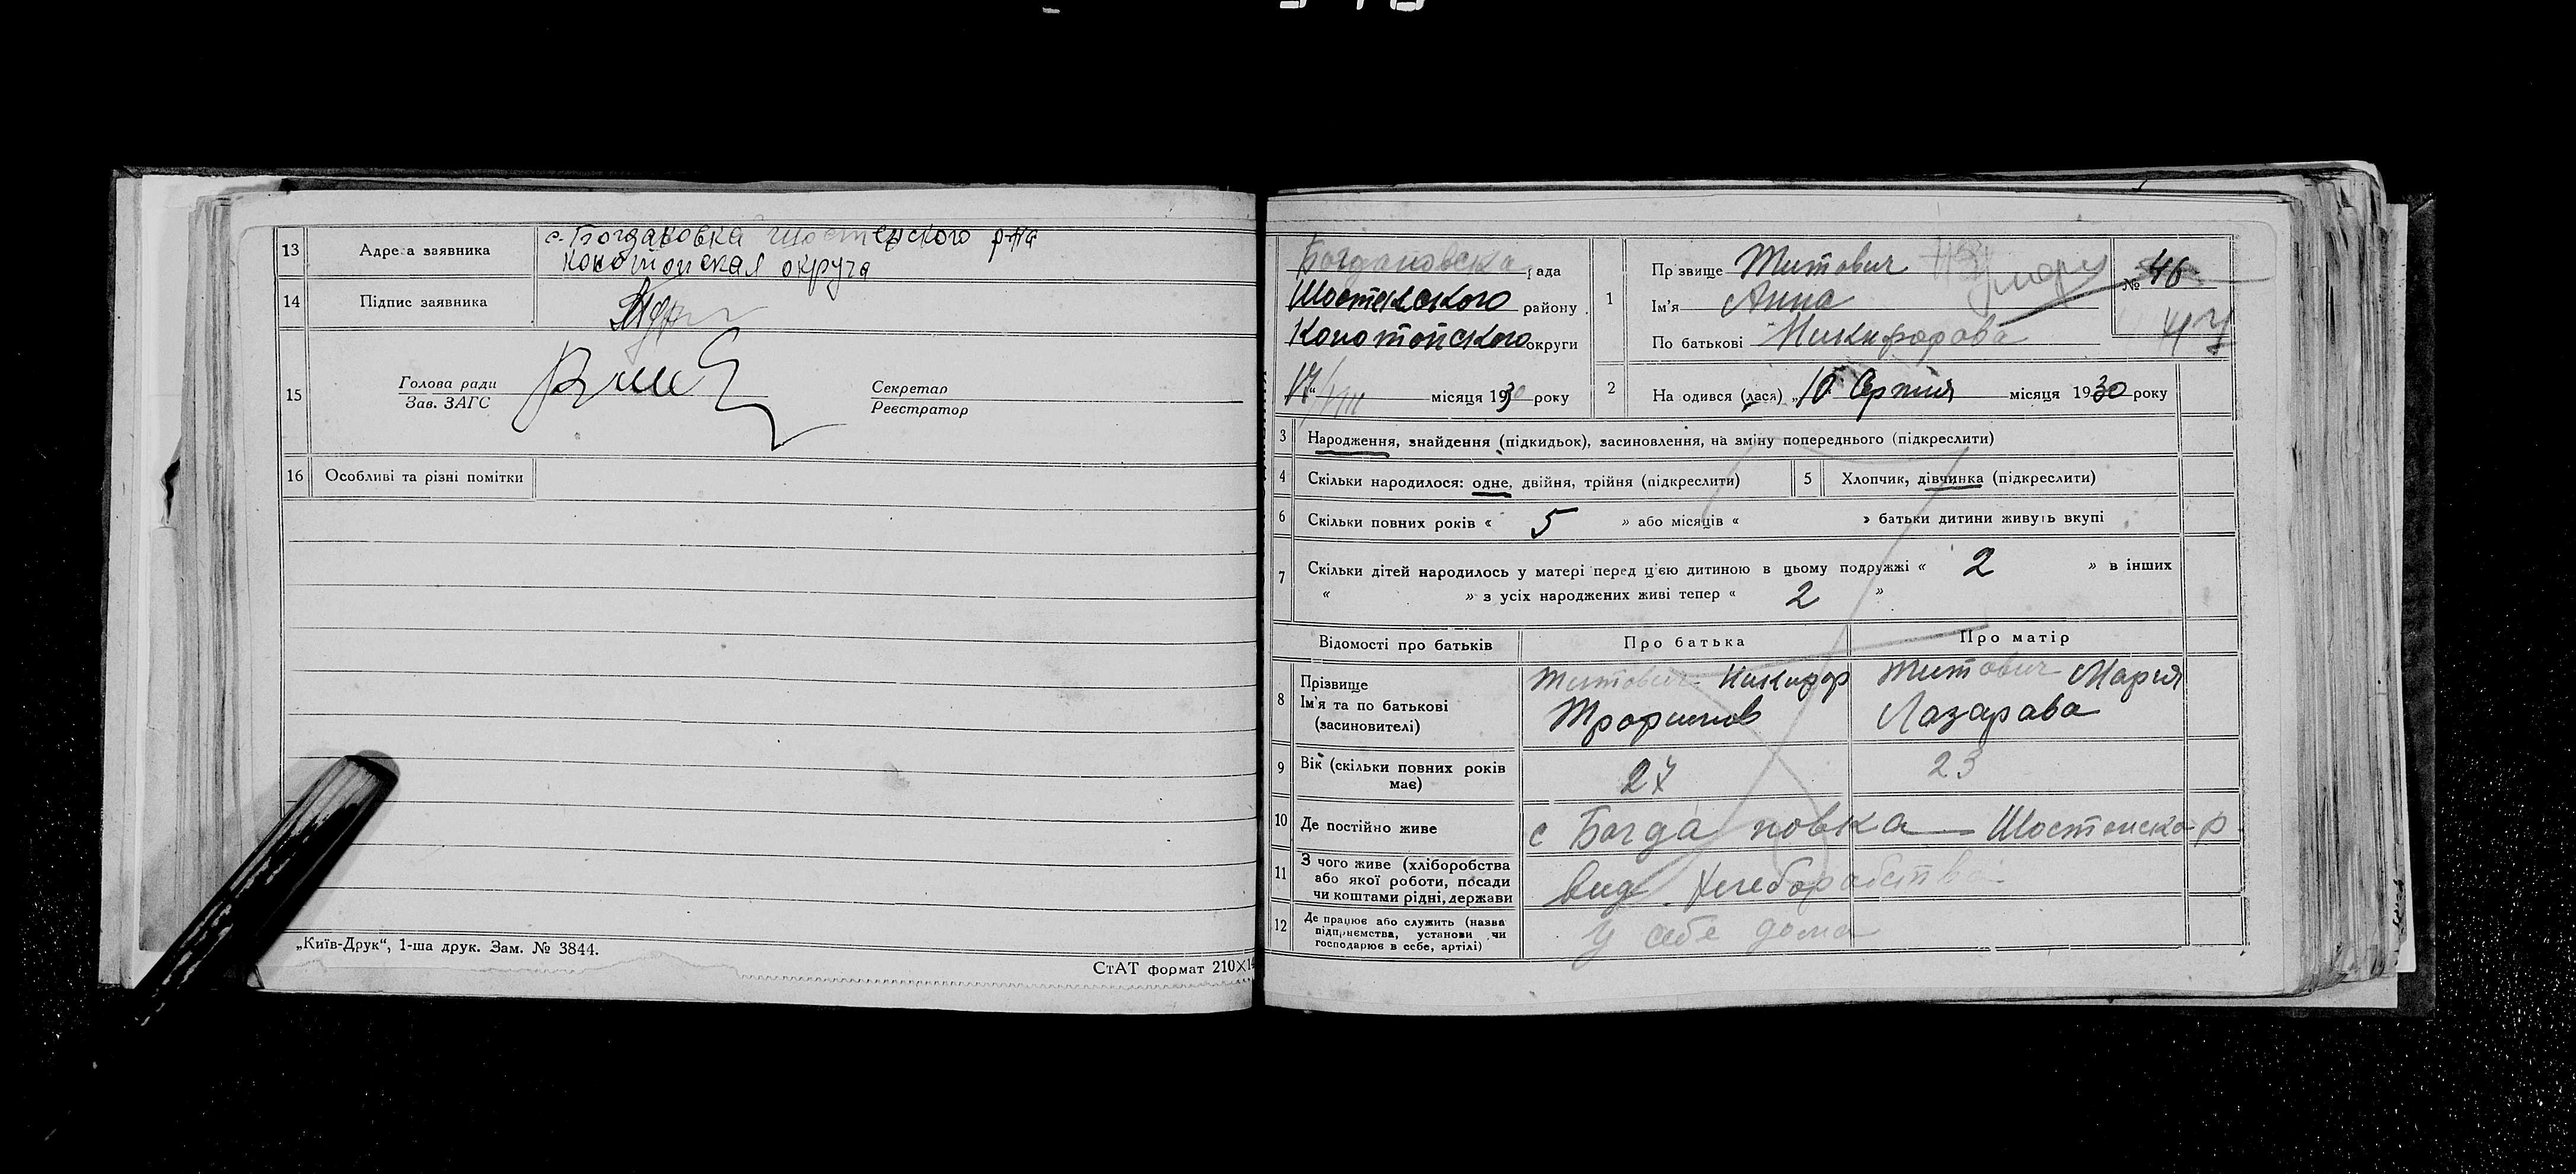 13 Адреса заявника с. Богдановка Шостенского р-на
Конотопская округа
14 Підпис заявника
15 Голова ради
Зав. ЗАГС
Секретар
Реєстратор
16 Особливі та різні помітки
„Київ-Друк“, 1-ша друк. Зам. № 3844.
СтАТ формат 210×14
Богдановска рада
Шостенского району
Конотопского округи
17/VIII місяця 1930 року
1 Прізвище Титович
Ім'я Анна
По батькові Никифорова
умерл
№ 46
47
2 Народився (лася) „10 Серпня місяця 1930 року
3 Народження, знайдення (підкидьок), засиновлення, на зміну попереднього (підкреслити)
4 Скільки народилося: одне, двійня, трійня (підкреслити) 5 Хлопчик, дівчинка (підкреслити)
6 Скільки повних років « 5 » або місяців « » батьки дитини живуть вкупі
7 Скільки дітей народилось у матері перед цією дитиною в цьому подружжі « 2 » в інших
« » з усіх народжених живі тепер « 2 »
Відомості про батьків Про батька Про матір
8 Прізвище
Ім'я та по батькові
(засиновителі)
Титович Никифор
Трофимов
Титович Мария
Лазарава
9 Вік (скільки повних років
має)
27 23
10 Де постійно живе с Богдановка Шостенско р
11 З чого живе (хліборобства
або якої роботи, посади
чи коштами рідні, держави
вид. Хлеборабства
12 Де працює або служить (назва
підприємства, установи чи
господарює в себе, артілі)
У себе дома